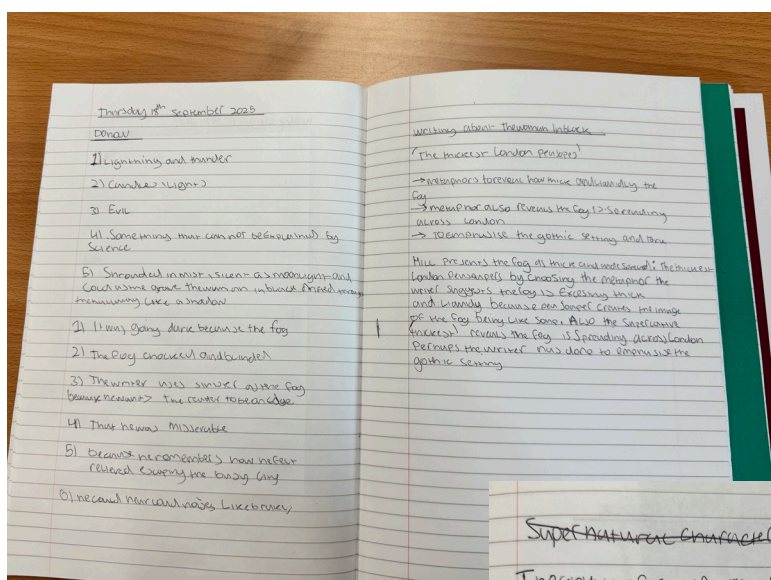 Thursday 18th September 2025
Donow
1) Lightning and thunder
2) Candles (light)
3) Evil
4) Something that can not be explained by
Science
5) Shrouded in mist, silent as moonlight and
cold as the grave the woman in black drifted through
the like a shadow
1) It was going dark because the fog
2) The fog choked and blinded
3) The writer uses similer as the fog
because he wants the reader to be on edge
4) That he was misserable
5) because he remembers how he felt
relieved escaping the busy city
6) he could hear loud noises like brakes,
Writing about The woman In black
'The thickest London peasouper'
→ metaphors to reveal how thick and clamidly the
fog
→ metaphor also reveals the fog is spreading
across London
→ To emphasise the gothic setting and tone
Hill presents the fog as thick and wide spread: The thickest
London peasoupers by choosing the metaphor the
writer suggests the fog is exposing thick
and clamidy because pea souper creates the image
of the fog being like soup. Also the superlative
'thickest' reveals the fog is spreading across London
Perhaps the writer has done to emphasise the
gothic setting
Supernatural character